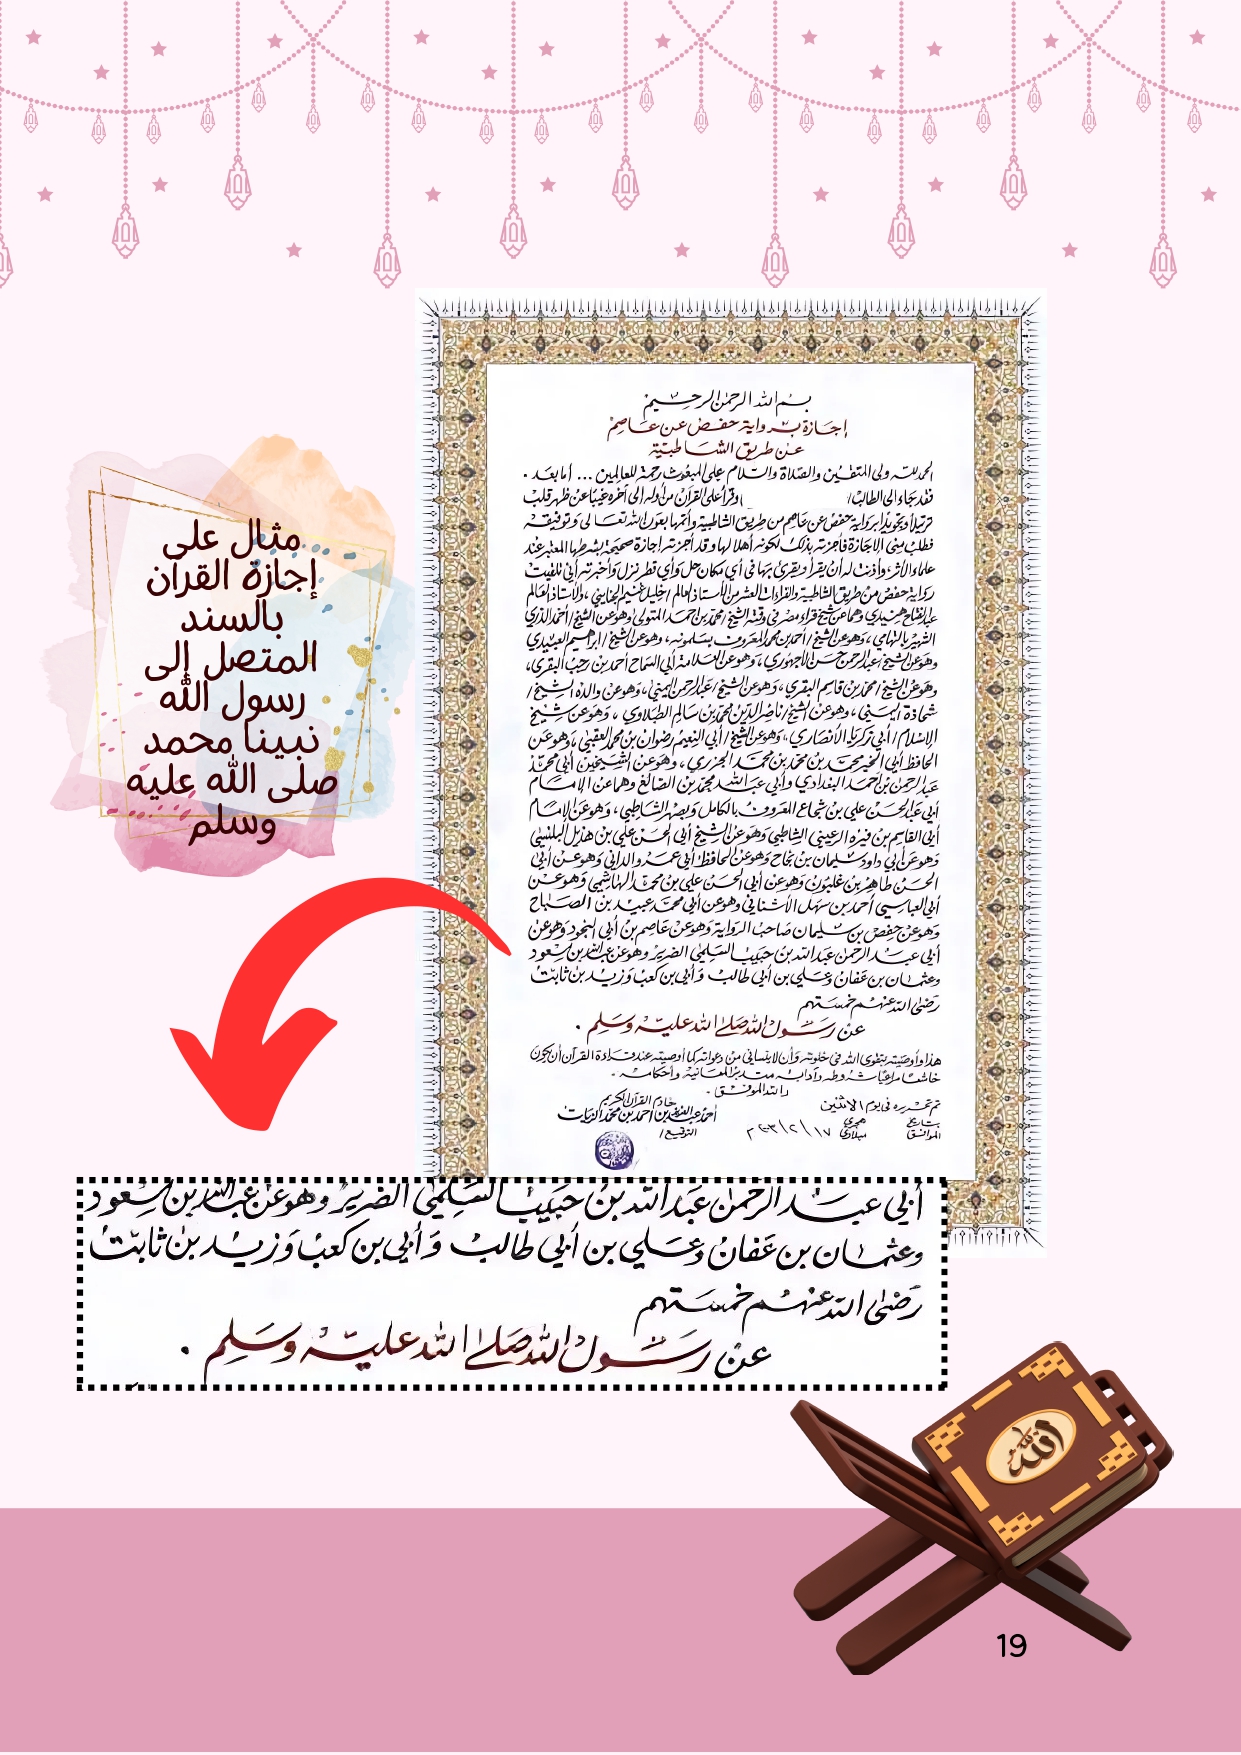 مثال على
إجازة القرآن
بالسند
المتصل إلى
رسول الله
نبينا محمد
صلى الله عليه
وسلم
بسم الله الرحمن الرحيم
إجازة برواية حفص عن عاصم
عن طريق الشاطبية
الحمد لله ولي المتقين والصلاة والسلام على المبعوث رحمة للعالمين ... أما بعد .
فقد جاء إلي الطالب / وقرأ علي القرآن من أوله إلى آخره غيبا عن ظهر قلب
ترتيلا وتجويدا برواية حفص عن عاصم من طريق الشاطبية وأتمها بعون الله تعالى وتوفيقه
فطلب مني الإجازة فأجزته بذلك لكونه أهلا لها وقد أجزته إجازة صحيحة بشرطها المعتبر عند
علماء الأثر وأذنت له أن يقرأ ويقرئ بها في أي مكان حل وأي قطر نزل وأخبرته أني تلقيت
رواية حفص من طريق الشاطبية والقراءات العشر من الأستاذ العالم / خليل غنيم الجنايني ، والأستاذ العالم
عبد الفتاح هنيدي وهما عن شيخ قراء مصر في وقته الشيخ / محمد بن أحمد المتولي وهو عن الشيخ / أحمد الدري
الشهير بالتهامي ، وهو عن الشيخ / أحمد بن محمد المعروف بسلمونه ، وهو عن الشيخ / إبراهيم العبيدي
وهو عن الشيخ / عبد الرحمن حسن الأجهوري ، وهو عن العلامة أبي السماح أحمد بن رجب البقري ،
وهو عن الشيخ / محمد بن قاسم البقري ، وهو عن الشيخ / عبد الرحمن اليمني ، وهو عن والده الشيخ /
شحاذة اليمني ، وهو عن الشيخ / ناصر الدين محمد بن سالم الطبلاوي ، وهو عن شيخ
الإسلام / أبي زكريا الأنصاري ، وهو عن الشيخ / أبي النعيم رضوان بن محمد العقبي ، وهو عن
الحافظ أبي الخير محمد بن محمد بن محمد الجزري ، وهو عن الشيخين أبي محمد
عبد الرحمن بن أحمد البغدادي وأبي عبد الله محمد بن الصائغ وهما عن الإمام
أبي عبد الحسن علي بن شجاع المعروف بالكامل وبصهر الشاطبي ، وهو عن الإمام
أبي القاسم بن فيره الرعيني الشاطبي وهو عن الشيخ أبي الحسن علي بن هذيل البلنسي
وهو عن أبي داود سليمان بن نجاح وهو عن الحافظ أبي عمرو الداني وهو عن أبي
الحسن طاهر بن غلبون وهو عن أبي الحسن علي بن محمد الهاشمي وهو عن
أبي العباسي أحمد بن سهل الأشناني وهو عن أبي محمد عبيد بن الصباح
وهو عن حفص بن سليمان صاحب الرواية وهو عن عاصم بن أبي النجود وهو عن
أبي عبد الرحمن عبد الله بن حبيب السلمي الضرير وهو عن عبد الله بن مسعود
وعثمان بن عفان وعلي بن أبي طالب وأبي بن كعب وزيد بن ثابت
رضي الله عنهم خمستهم
عن رسول الله صلى الله عليه وسلم .
هذا وأوصيته بتقوى الله في خلوته وأن لا ينساني من دعواته كما أوصيته عند قراءة القرآن أن يكون
خاشعا مراعيا شروطه وآدابه متدبرا لمعانيه وأحكامه .
والله الموفق .
تم تحريره في يوم الاثنين
بتاريخ هجري
الموافق ١٧ / ٢ / ٢٠٣ م ميلادي
خادم القرآن الكريم
أحمد عبد العزيز بن أحمد بن محمد الزيات
التوقيع /
أبي عبد الرحمن عبد الله بن حبيب السلمي الضرير وهو عن عبد الله بن مسعود
وعثمان بن عفان وعلي بن أبي طالب وأبي بن كعب وزيد بن ثابت
رضي الله عنهم خمستهم
عن رسول الله صلى الله عليه وسلم .
الله
19